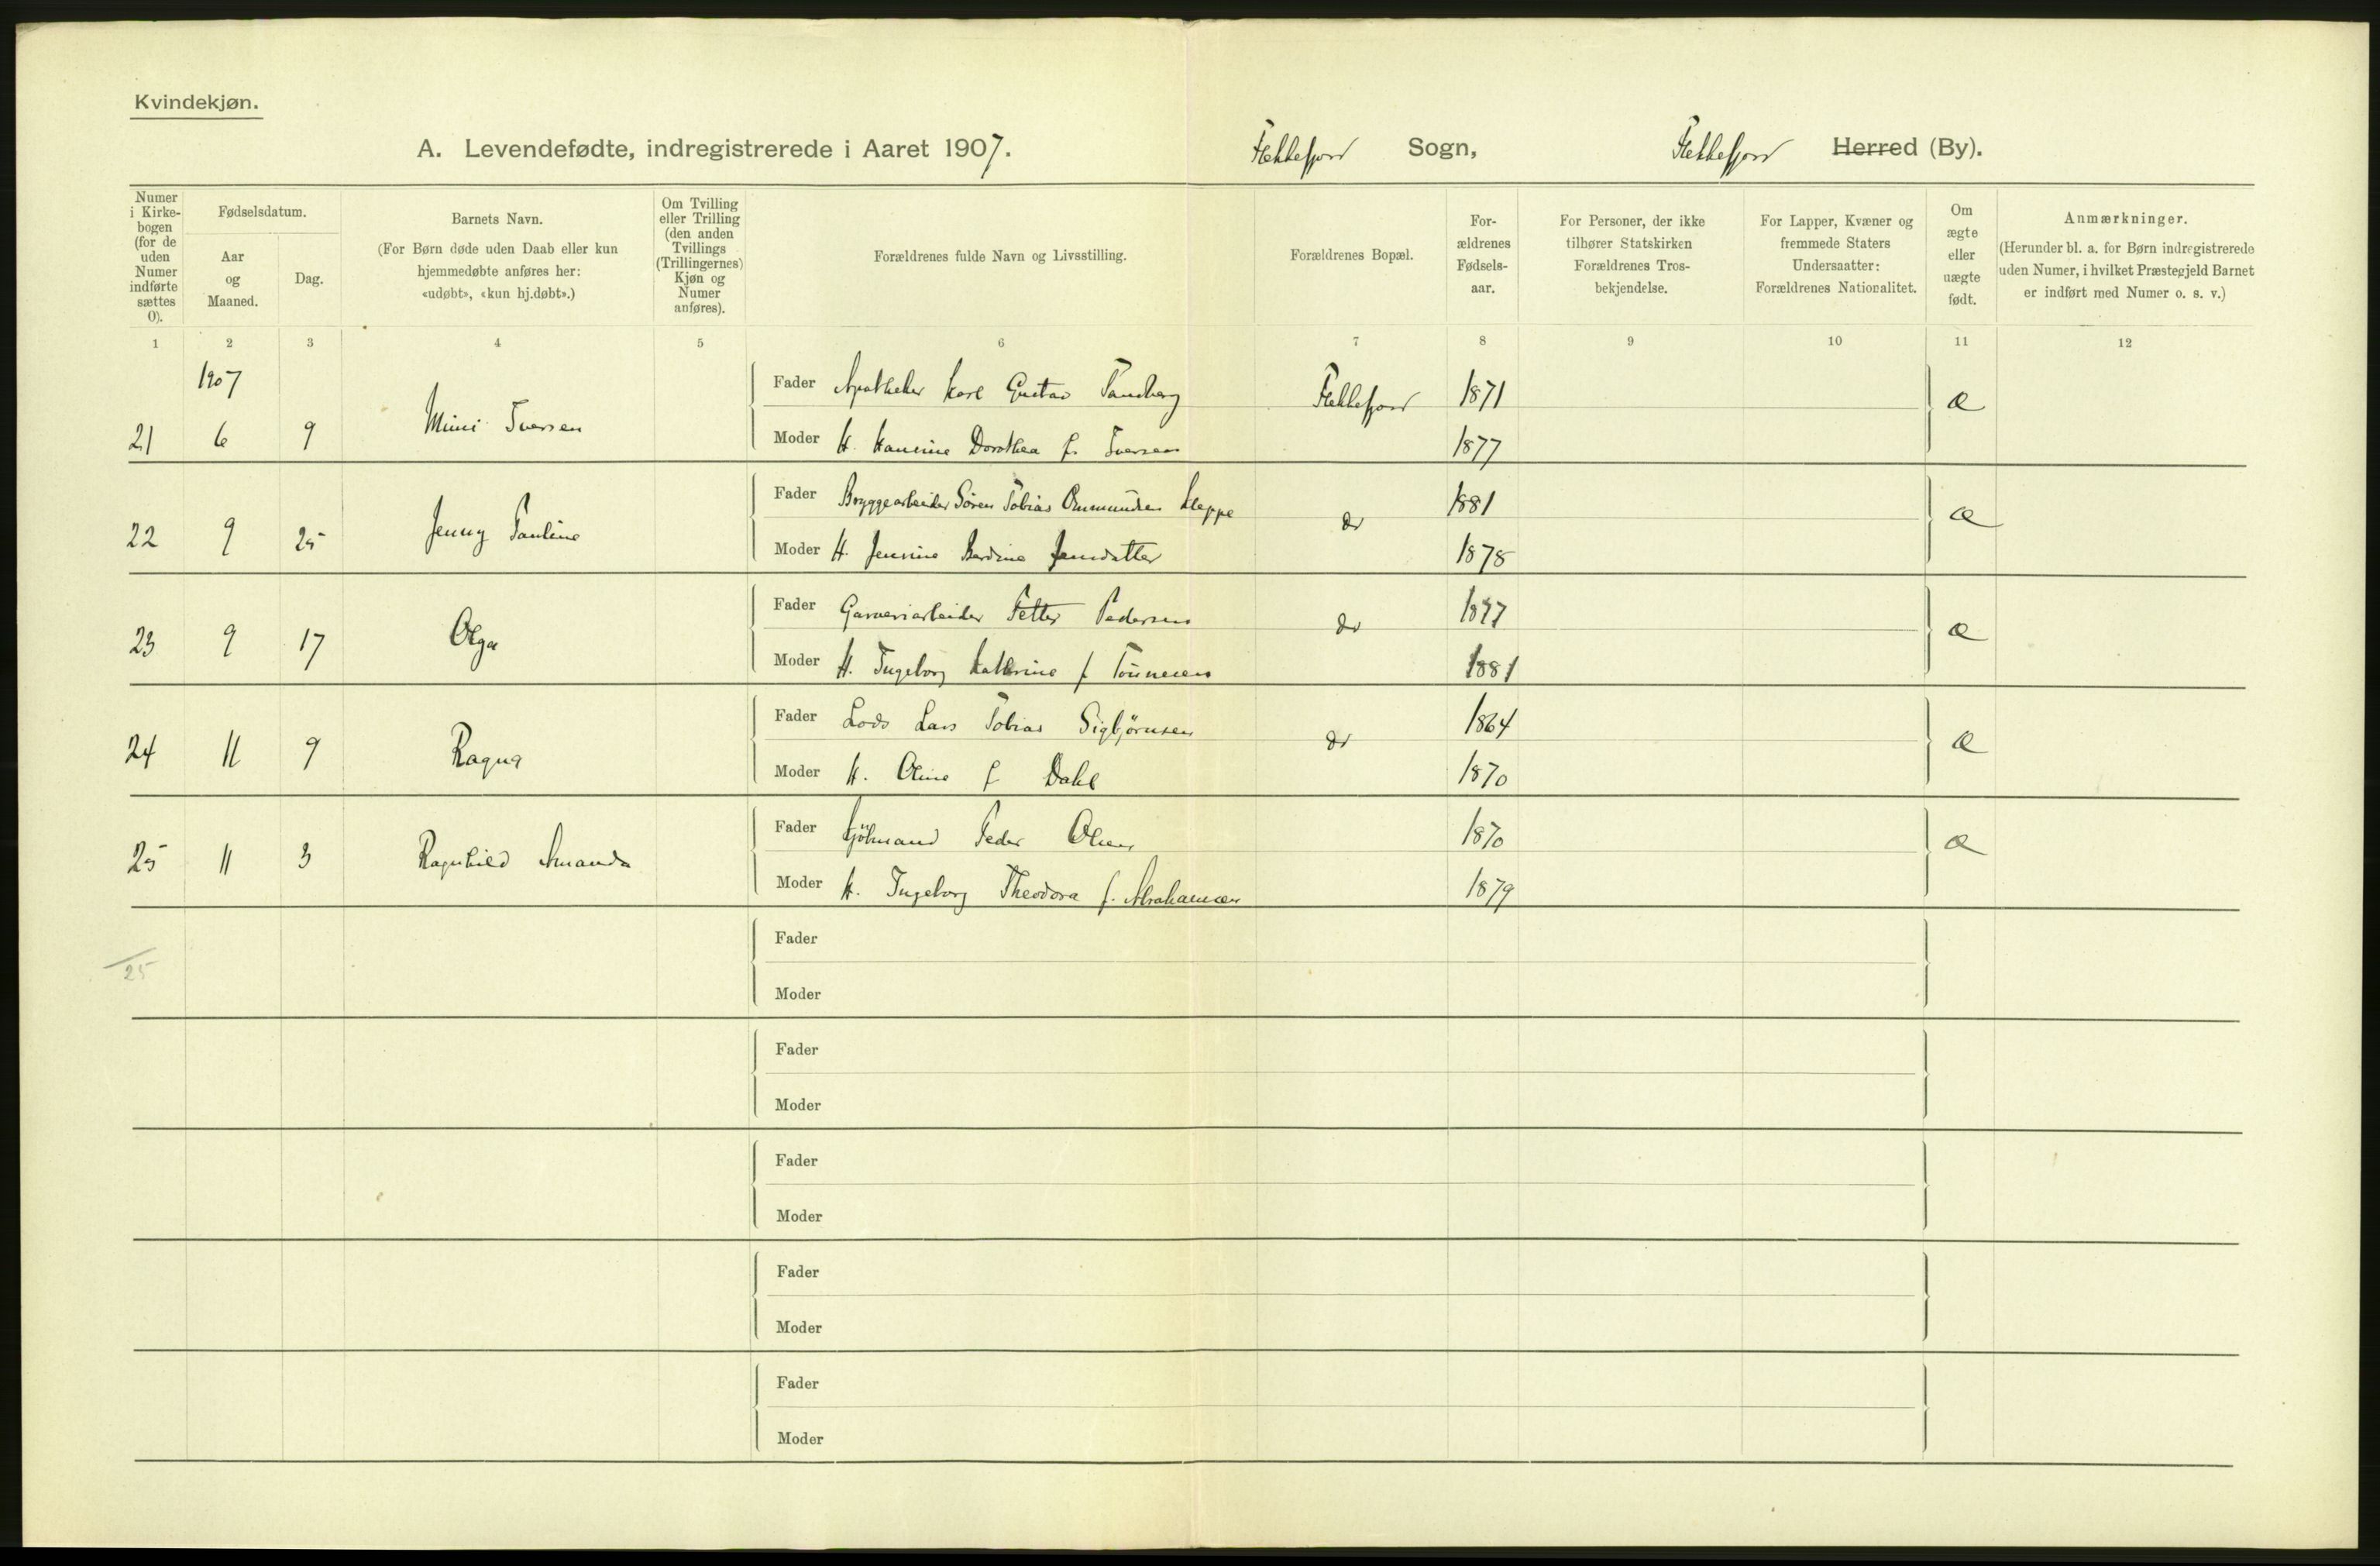 Kvindekjøn.
A. Levendefødte, indregistrerede i Aaret 1907. Flekkefjord Sogn, Flekkefjord Herred (By).
Numer i Kirke-bogen (for de uden Numer indførte sættes 0).
Fødselsdatum.
Aar og Maaned.
Dag.
Barnets Navn.
(For Børn døde uden Daab eller kun hjemmedøbte anføres her: «udøbt», «kun hj.døbt».)
Om Tvilling eller Trilling (den anden Tvillings (Trillingernes) Kjøn og Numer anføres).
Forældrenes fulde Navn og Livsstilling.
Forældrenes Bopæl.
For-ældrenes Fødsels-aar.
For Personer, der ikke tilhører Statskirken Forældrenes Tros-bekjendelse.
For Lapper, Kvæner og fremmede Staters Undersaatter: Forældrenes Nationalitet.
Om ægte eller uægte født.
Anmærkninger.
(Herunder bl. a. for Børn indregistrerede uden Numer, i hvilket Præstegjeld Barnet er indført med Numer o. s. v.)
1 2 3 4 5 6 7 8 9 10 11 12
1907
21 6 9 Mimi Iversen Fader Apotheker Karl Gustav Tandberg Flekkefjord 1871 Æ
Moder H. Hansine Dorothea f. Iversen 1877
22 9 25 Jenny Pauline Fader Bryggearbeider Sören Tobias Ommundsen Kleppe do 1881 Æ
Moder H. Jensine Berdine Jensdatter 1878
23 9 17 Olga Fader Garveriarbeider Petter Pedersen do 1877 Æ
Moder H. Ingeborg Kathrine f Tönnesen 1881
24 11 9 Ragna Fader Lods Lars Tobias Sigbjörnsen do 1864 Æ
Moder H. Oline f Dahl 1870
25 11 3 Ragnhild Amanda Fader Sjömand Peder Olsen 1870 Æ
Moder H. Ingeborg Theodora f. Abrahamsen 1879
Fader
25
Moder
Fader
Moder
Fader
Moder
Fader
Moder
Fader
Moder